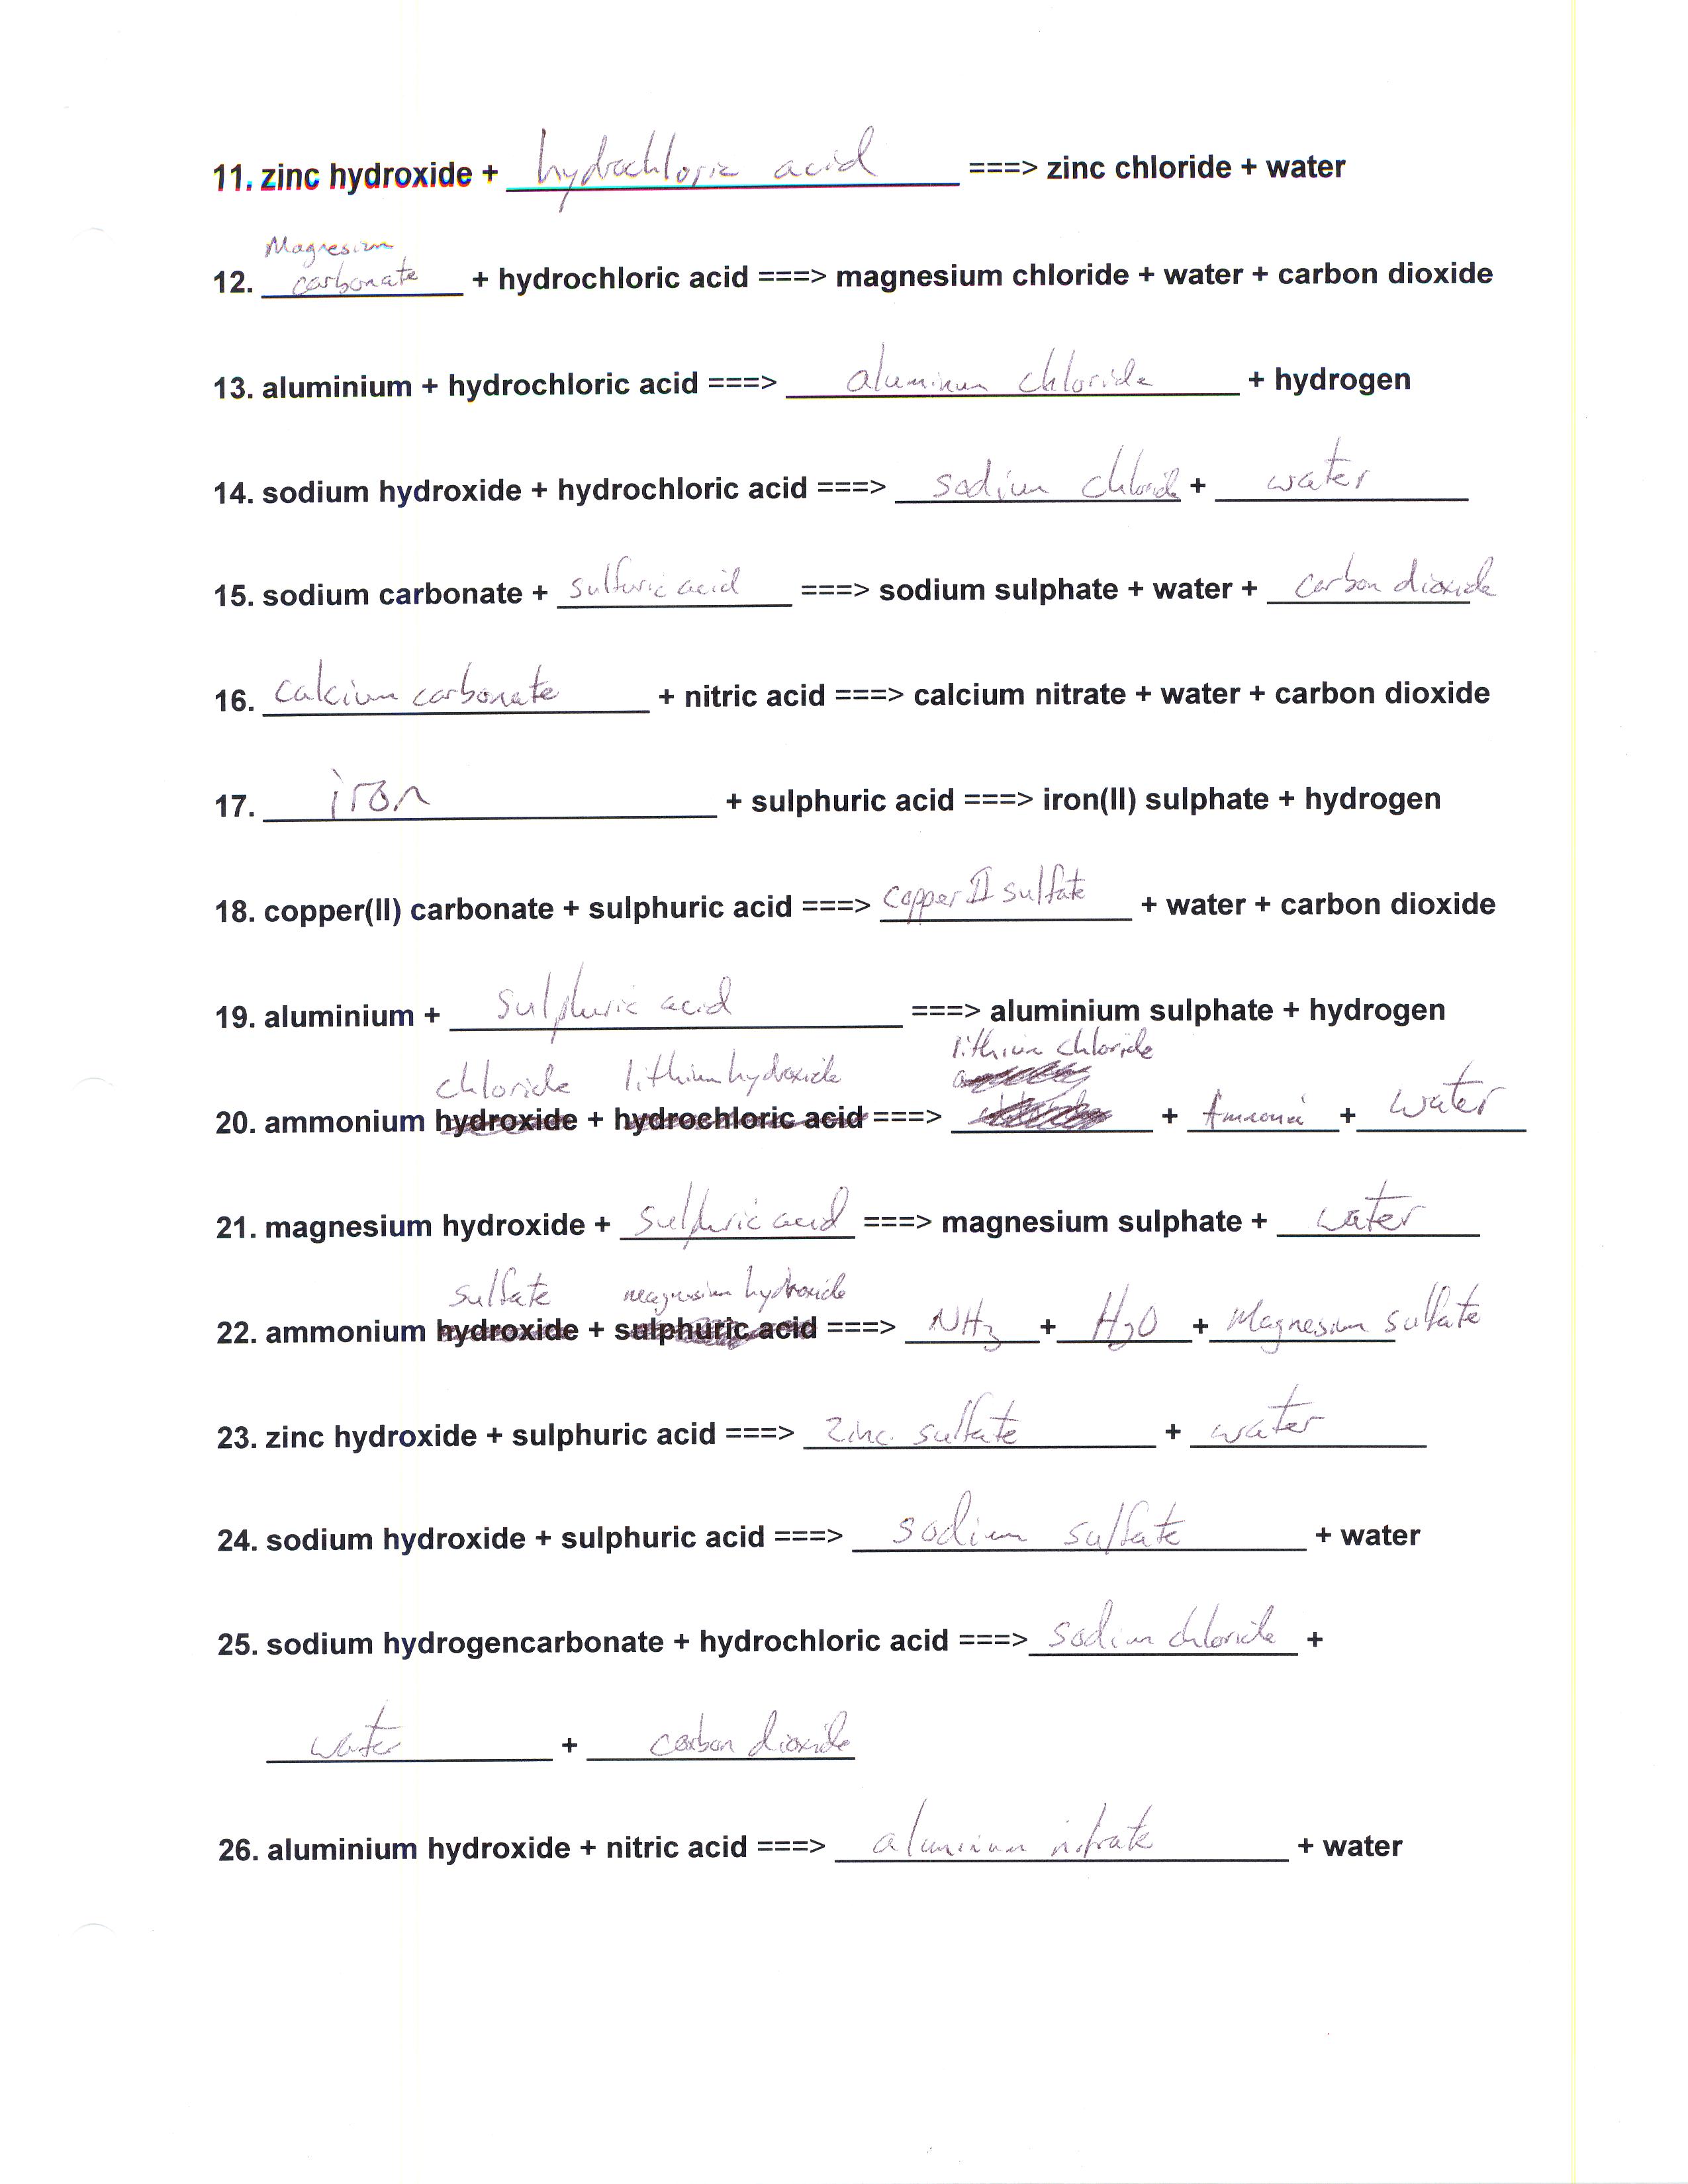 11. zinc hydroxide + hydrochloric acid ===> zinc chloride + water
Magnesium
12. carbonate + hydrochloric acid ===> magnesium chloride + water + carbon dioxide
13. aluminium + hydrochloric acid ===> aluminum chloride + hydrogen
14. sodium hydroxide + hydrochloric acid ===> sodium chloride + water
15. sodium carbonate + sulfuric acid ===> sodium sulphate + water + carbon dioxide
16. calcium carbonate + nitric acid ===> calcium nitrate + water + carbon dioxide
17. iron + sulphuric acid ===> iron(II) sulphate + hydrogen
18. copper(II) carbonate + sulphuric acid ===> copper II sulfate + water + carbon dioxide
19. aluminium + sulphuric acid ===> aluminium sulphate + hydrogen
chloride lithium hydroxide lithium chloride
20. ammonium hydroxide + hydrochloric acid ===> + Ammonia + water
21. magnesium hydroxide + sulphuric acid ===> magnesium sulphate + water
sulfate magnesium hydroxide
22. ammonium hydroxide + sulphuric acid ===> NH3 + H2O + Magnesium sulfate
23. zinc hydroxide + sulphuric acid ===> Zinc sulfate + water
24. sodium hydroxide + sulphuric acid ===> sodium sulfate + water
25. sodium hydrogencarbonate + hydrochloric acid ===> sodium chloride +
water + carbon dioxide
26. aluminium hydroxide + nitric acid ===> aluminum nitrate + water